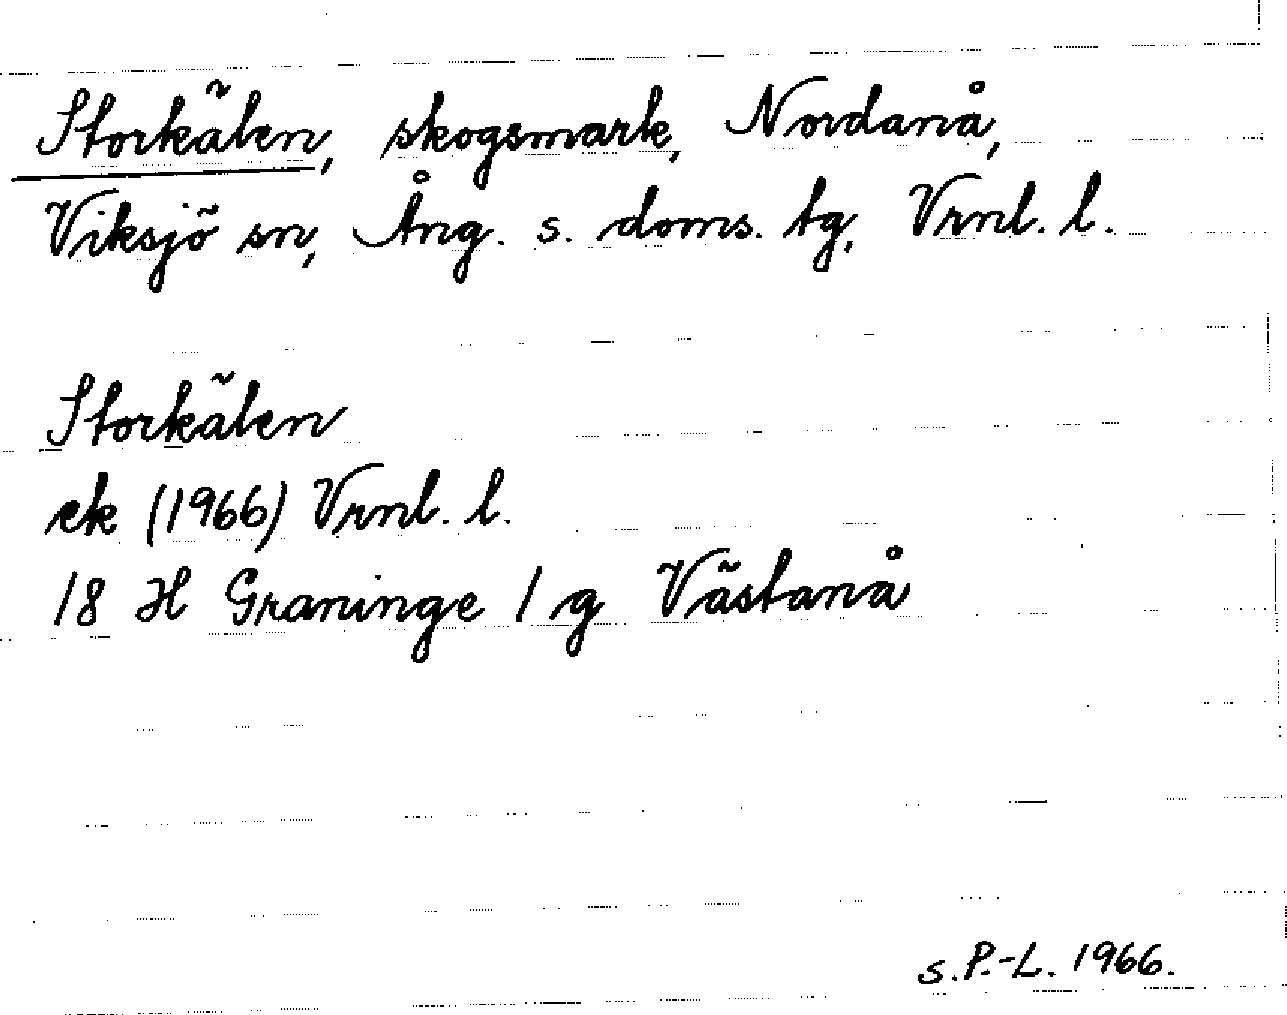 Storkälen, skogsmark, Nordanå,
Viksjö sn, Ång. s. doms. tg, Vrnl. l.
Storkälen
ek (1966) Vrnl. l.
18 H Graninge 1 g Västanå
s. P.-L. 1966.